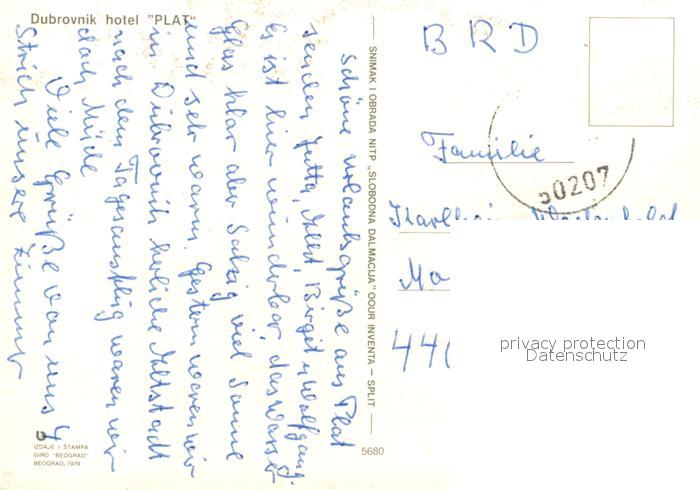 Dubrovnik hotel "PLAT"
schöne Urlaubsgrüße aus Plat
senden Jutta, Albert, Birgit u Wolfgang.
Es ist hier wunderbar, das Wasser
Glas klar aber Salzig viel Sonne
und sehr warm. Gestern waren wir
in Dubrovnik herliche Altstadt
nach dem Tagesausflug waren wir
dan Müde
Viele Grüße von uns 4
Strich unsere Zimmer
IZDAJE I ŠTAMPA
GIRO "BEOGRAD"
BEOGRAD, 1979
SNIMAK I OBRADA NITP „SLOBODNA DALMACIJA" OOUR INVENTA – SPLIT
5680
BRD
50207
Familie
Ma
44
privacy protection
Datenschutz